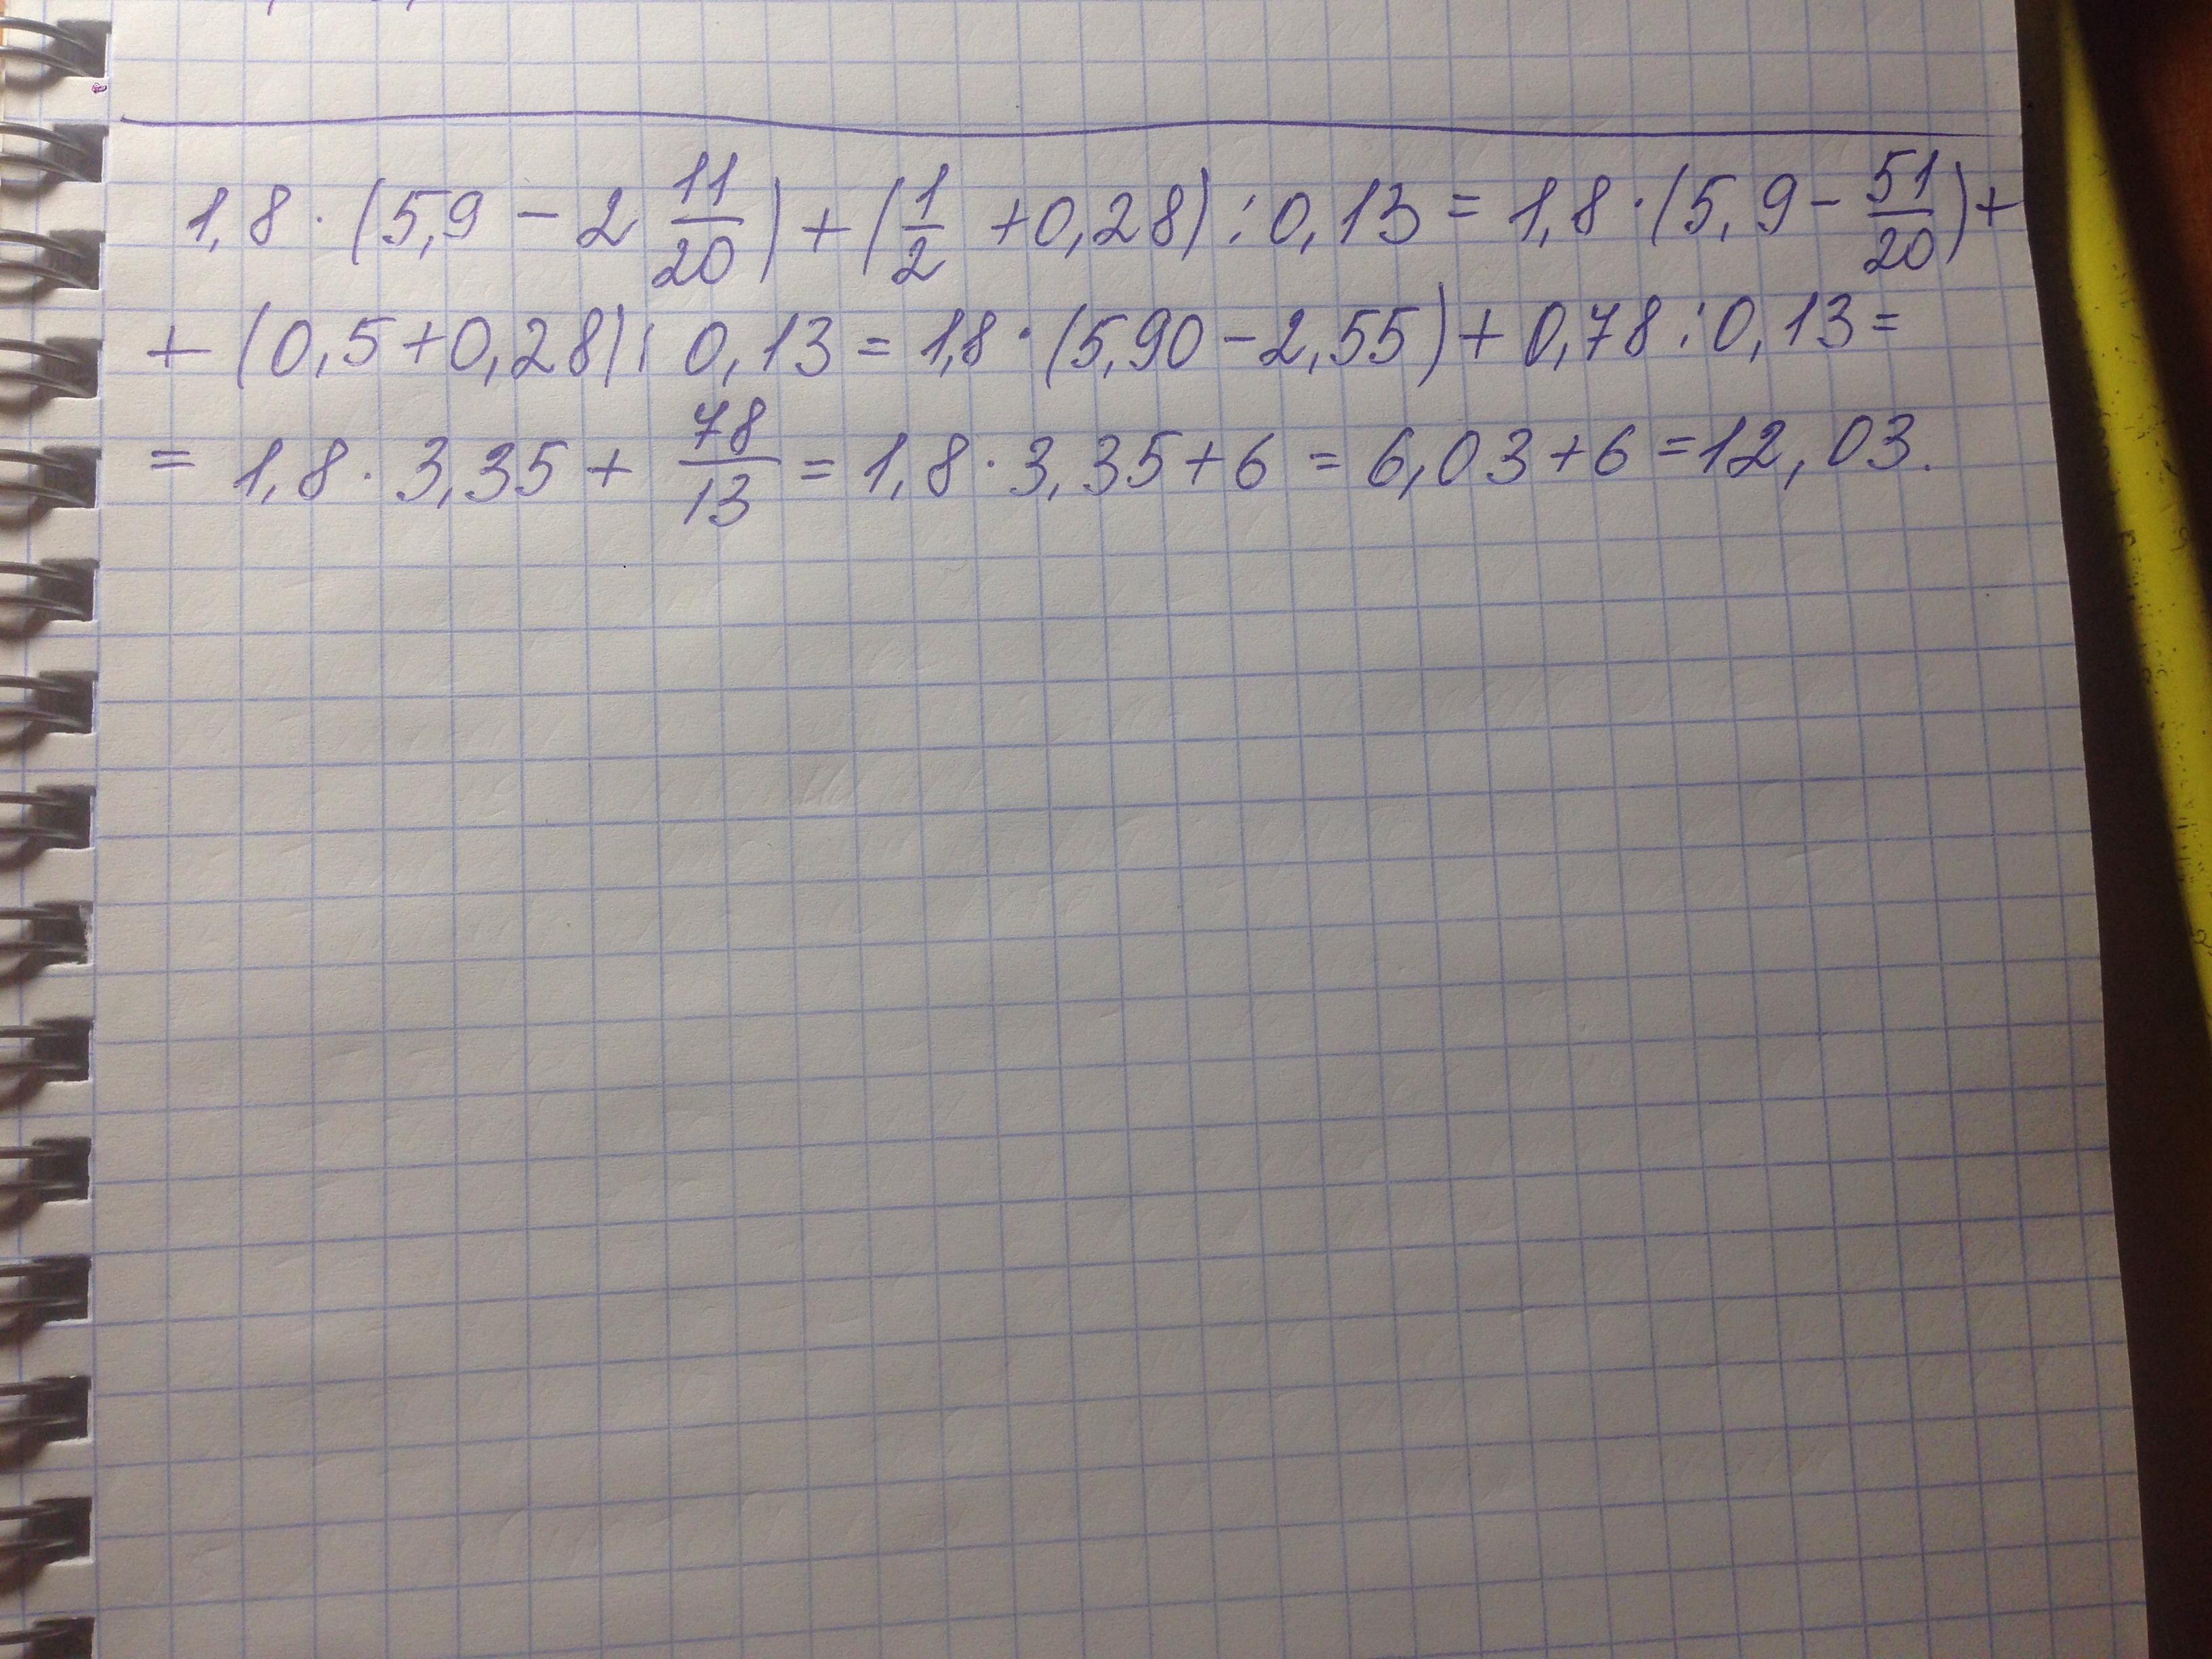 1,8 · (5,9 - 2 11/20) + (1/2 + 0,28) : 0,13 = 1,8 · (5,9 - 51/20) +
+ (0,5 + 0,28) : 0,13 = 1,8 · (5,90 - 2,55) + 0,78 : 0,13 =
= 1,8 · 3,35 + 78/13 = 1,8 · 3,35 + 6 = 6,03 + 6 = 12,03.